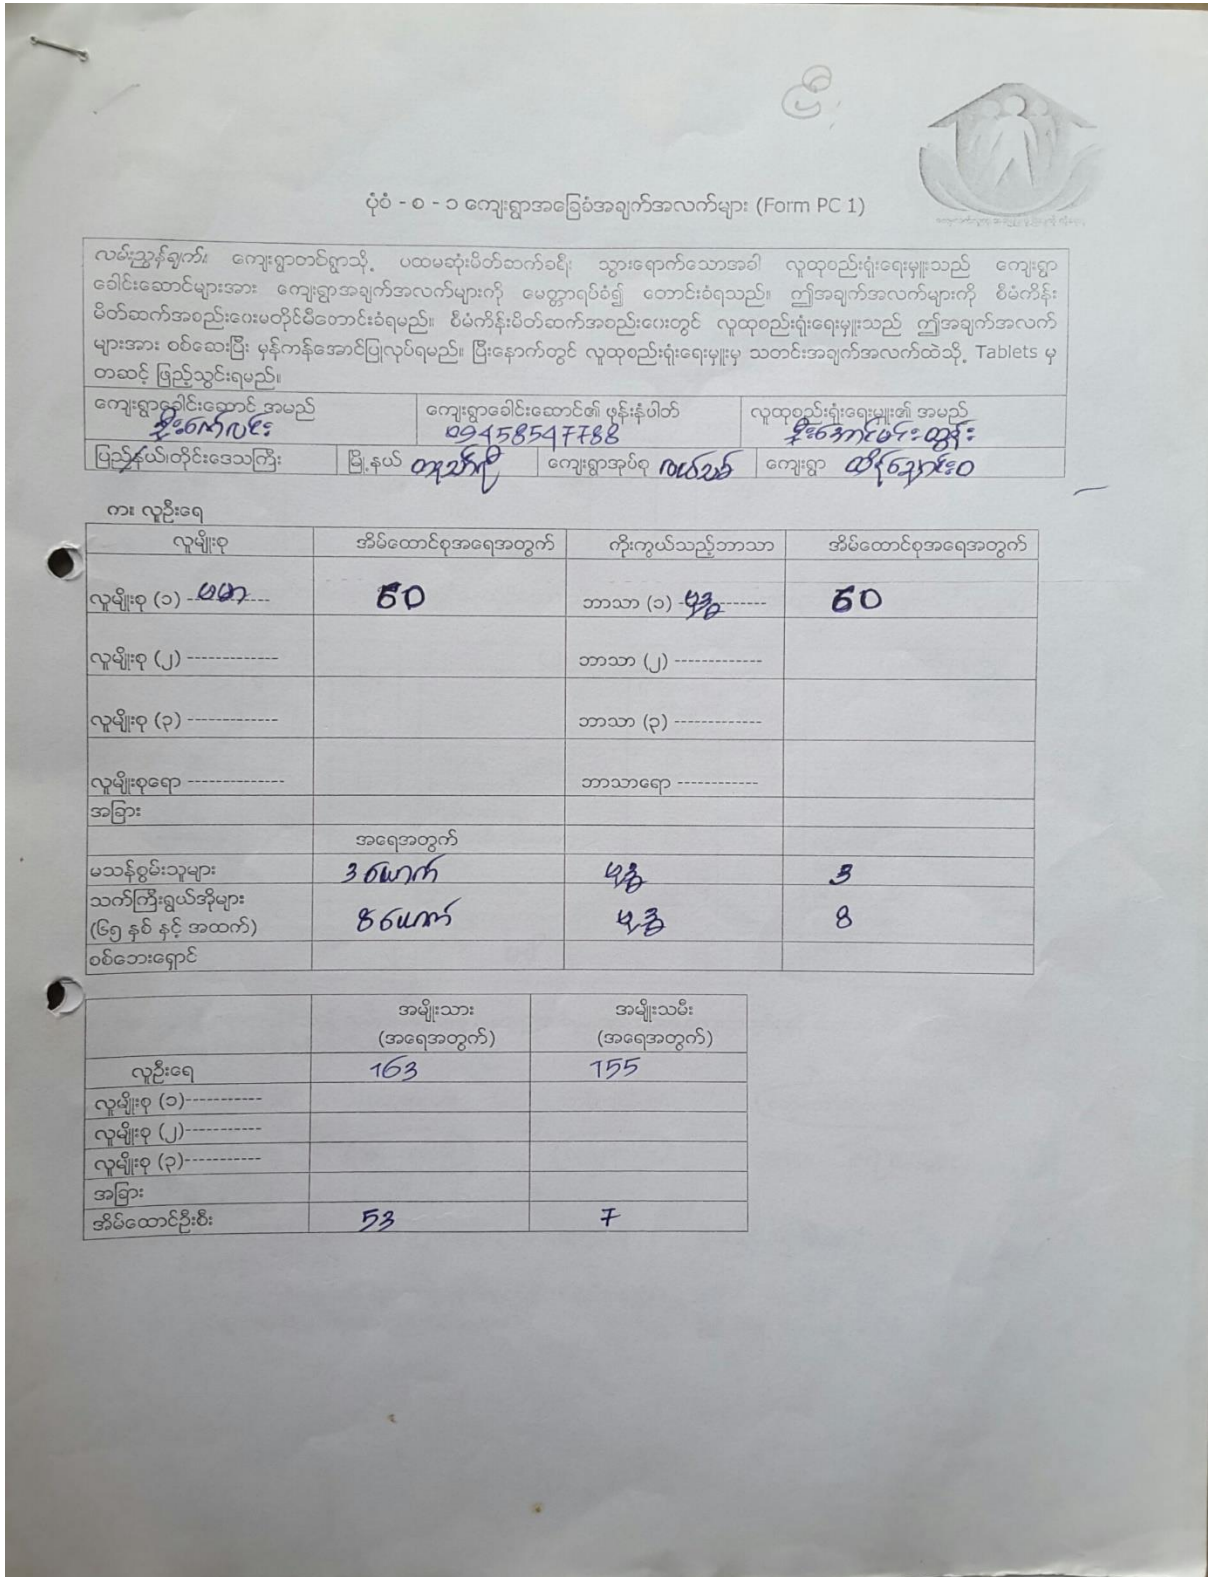 ပြီး
ပုံစံ - စ - ၁ ကျေးရွာအခြေခံအချက်အလက်များ (Form PC 1)
လမ်းညွှန်ချက်။ ကျေးရွာတစ်ရွာသို့ ပထမဆုံးမိတ်ဆက်ခရီး သွားရောက်သောအခါ လူထုစည်းရုံးရေးမှူးသည် ကျေးရွာ
ခေါင်းဆောင်များအား ကျေးရွာအချက်အလက်များကို မေတ္တာရပ်ခံ၍ တောင်းခံရသည်။ ဤအချက်အလက်များကို စီမံကိန်း
မိတ်ဆက်အစည်းဝေးမတိုင်မီတောင်းခံရမည်။ စီမံကိန်းမိတ်ဆက်အစည်းဝေးတွင် လူထုစည်းရုံးရေးမှူးသည် ဤအချက်အလက်
များအား စစ်ဆေးပြီး မှန်ကန်အောင်ပြုလုပ်ရမည်။ ပြီးနောက်တွင် လူထုစည်းရုံးရေးမှူးမှ သတင်းအချက်အလက်ထဲသို့ Tablets မှ
တဆင့် ဖြည့်သွင်းရမည်။
ကျေးရွာခေါင်းဆောင် အမည် ကျေးရွာခေါင်းဆောင်၏ ဖုန်းနံပါတ် လူထုစည်းရုံးရေးမှူး၏ အမည်
ဦးဇော်လင်း 09458547788 ဦးအောင်မင်းထွန်း
ပြည်နယ်၊တိုင်းဒေသကြီး မြို့နယ် တနင်္သာရီ ကျေးရွာအုပ်စု လယ်သစ် ကျေးရွာ ထိန်ချောင်းဝ
က။ လူဦးရေ
လူမျိုးစု အိမ်ထောင်စုအရေအတွက် ကိုးကွယ်သည့်ဘာသာ အိမ်ထောင်စုအရေအတွက်
လူမျိုးစု (၁) ဗမာ 60 ဘာသာ (၁) ဗုဒ္ဓ 60
လူမျိုးစု (၂) ------------- ဘာသာ (၂) -------------
လူမျိုးစု (၃) ------------- ဘာသာ (၃) -------------
လူမျိုးစုရော -------------- ဘာသာရော ------------
အခြား
အရေအတွက်
မသန်စွမ်းသူများ 3 ယောက် ဗုဒ္ဓ 3
သက်ကြီးရွယ်အိုများ
(၆၅ နှစ် နှင့် အထက်) 8 ယောက် ဗုဒ္ဓ 8
စစ်ဘေးရှောင်
အမျိုးသား အမျိုးသမီး
(အရေအတွက်) (အရေအတွက်)
လူဦးရေ 163 155
လူမျိုးစု (၁)-----------
လူမျိုးစု (၂)-----------
လူမျိုးစု (၃)-----------
အခြား
အိမ်ထောင်ဦးစီး 53 7